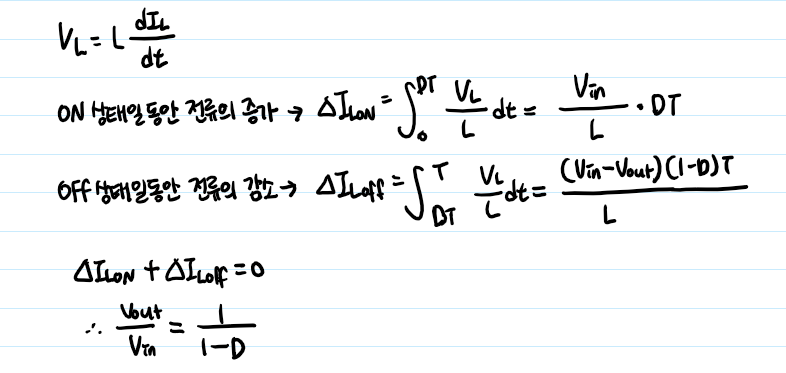 V_L = L dI_L/dt
ON 상태일동안 전류의 증가 → ΔI_LON = ∫_0^DT V_L/L dt = Vin/L · DT
OFF 상태일동안 전류의 감소 → ΔI_Loff = ∫_DT^T V_L/L dt = (Vin-Vout)(1-D)T/L
ΔI_LON + ΔI_Loff = 0
∴ Vout/Vin = 1/(1-D)